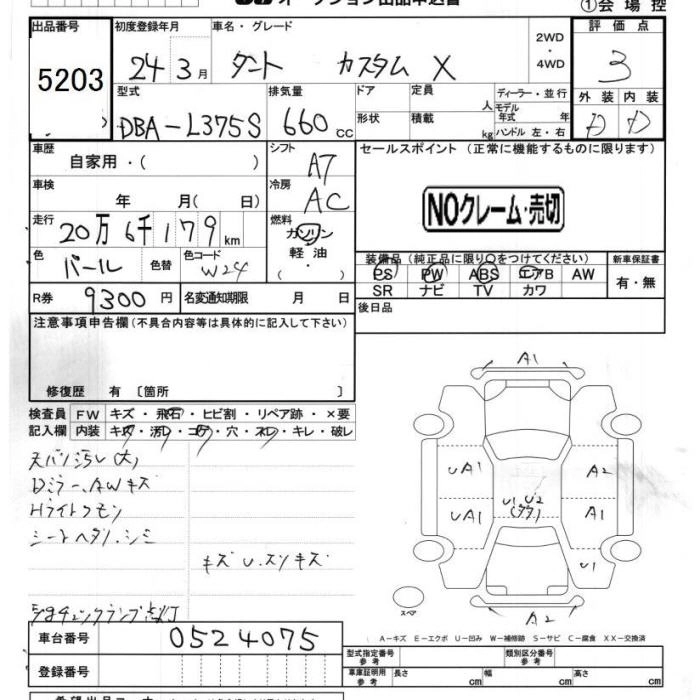 オークション出品申込書
①会場控
出品番号
5203
初度登録年月
24 3月
車名・グレード
タント カスタム X
2WD
・
4WD
評価点
3
外装 内装
D D
型式
DBA-L375S
排気量
660 cc
ドア 定員 人
形状 積載 kg
ディーラー・並行
モデル年式 年
ハンドル 左・右
車歴
自家用・( )
シフト
AT
車検
年 月( 日)
冷房
AC
走行
20万6千179km
燃料
ガソリン
軽油
色
パール
色替
色コード
W24
R券 9300円
名変通知期限 月 日
セールスポイント (正常に機能するものに限ります)
NOクレーム・売切
装備品(純正品に限り○をつけてください)
PS PW ABS エアB AW
SR ナビ TV カワ
新車保証書
有・無
後日品
注意事項申告欄(不具合内容等は具体的に記入して下さい)
修復歴 有 〔箇所 〕
検査員記入欄
FW キズ・飛石・ヒビ割・リペア跡・×要
内装 キズ・汚レ・コゲ・穴・スレ・キレ・破レ
天バリ汚レ(大)
Dミラー、AWキズ
Hライトクモリ
シートヘタリ、シミ
キズU、スリキズ
チェックランプ点灯
A1
UA1
A2
U1 U2
UA1
A1
U1
スペア
A2
A-キズ E-エクボ U-凹み W-補修跡 S-サビ C-腐食 XX-交換済
車台番号
0524075
登録番号
型式指定番号
参考
類別区分番号
参考
車庫証明用
参考
長さ cm
幅 cm
高さ cm
希望出品コーナー